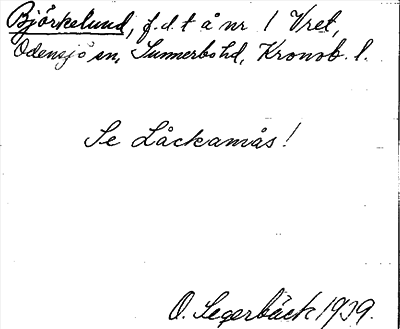 Björkelund, f.d.t å nr 1 Vret,
Odensjö sn, Sunnerbo hd, Kronob. l.
Se Låckamås!
O. Segerbäck 1939.